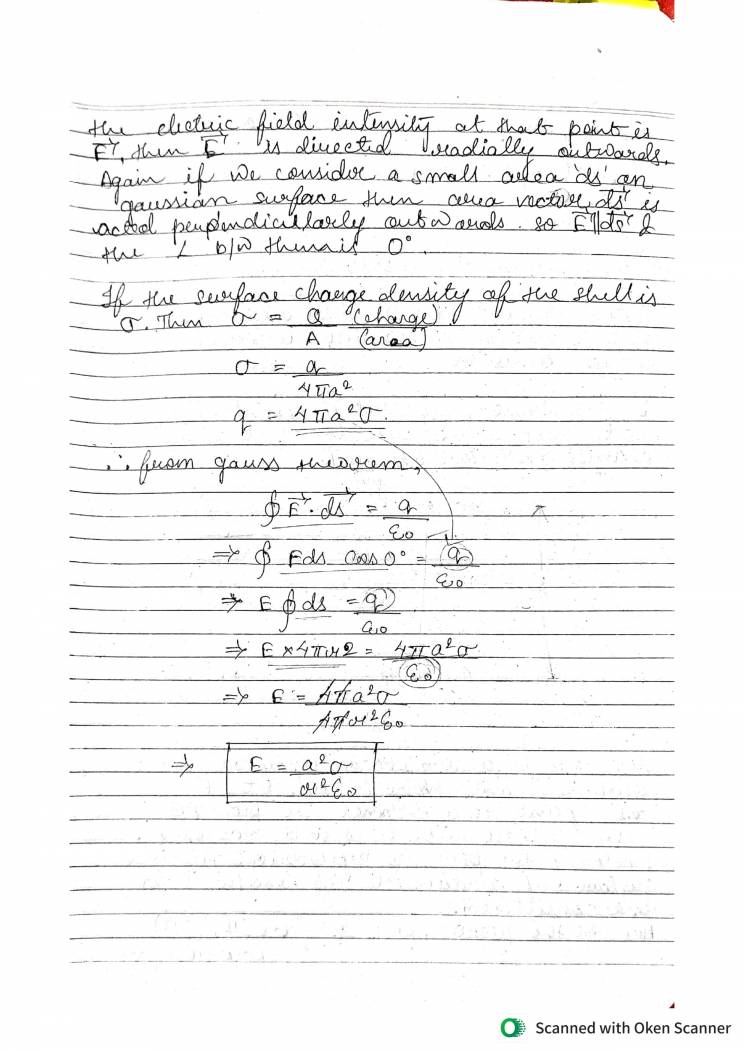 the electric field intensity at that point is
E⃗, then E⃗ is directed radially outwards.
Again if we consider a small area 'ds' on
gaussian surface then area vector ds⃗ is
acted perpendicularly outwards. so E⃗||ds⃗ &
the ∠ b/w them is 0°.
If the surface charge density of the shell is
σ. Then σ = Q/A (charge)/(area)
σ = q/4πa²
q = 4πa²σ.
∴ from gauss theorem,
∮ E⃗. ds⃗ = q/ε₀
⇒ ∮ Eds cos 0° = q/ε₀
⇒ E ∮ ds = q/ε₀
⇒ E × 4πr2 = 4πa²σ/ε₀
⇒ E = 4πa²σ/4πr²ε₀
⇒ E = a²σ/r²ε₀
Scanned with Oken Scanner